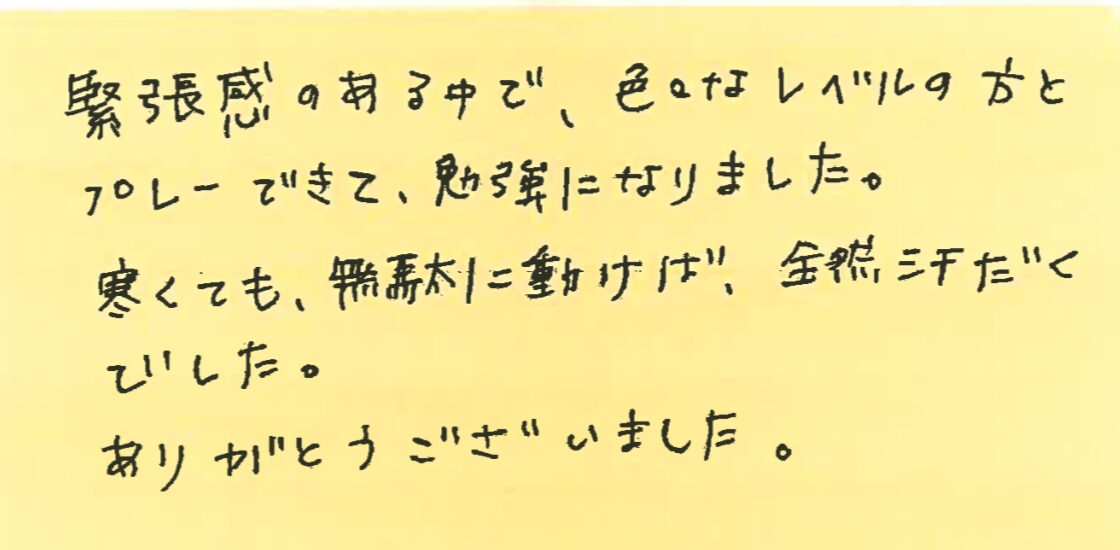 緊張感のある中で、色々なレベルの方と
プレーできて、勉強になりました。
寒くても、無駄に動けば、全然汗だく
でした。
ありがとうございました。